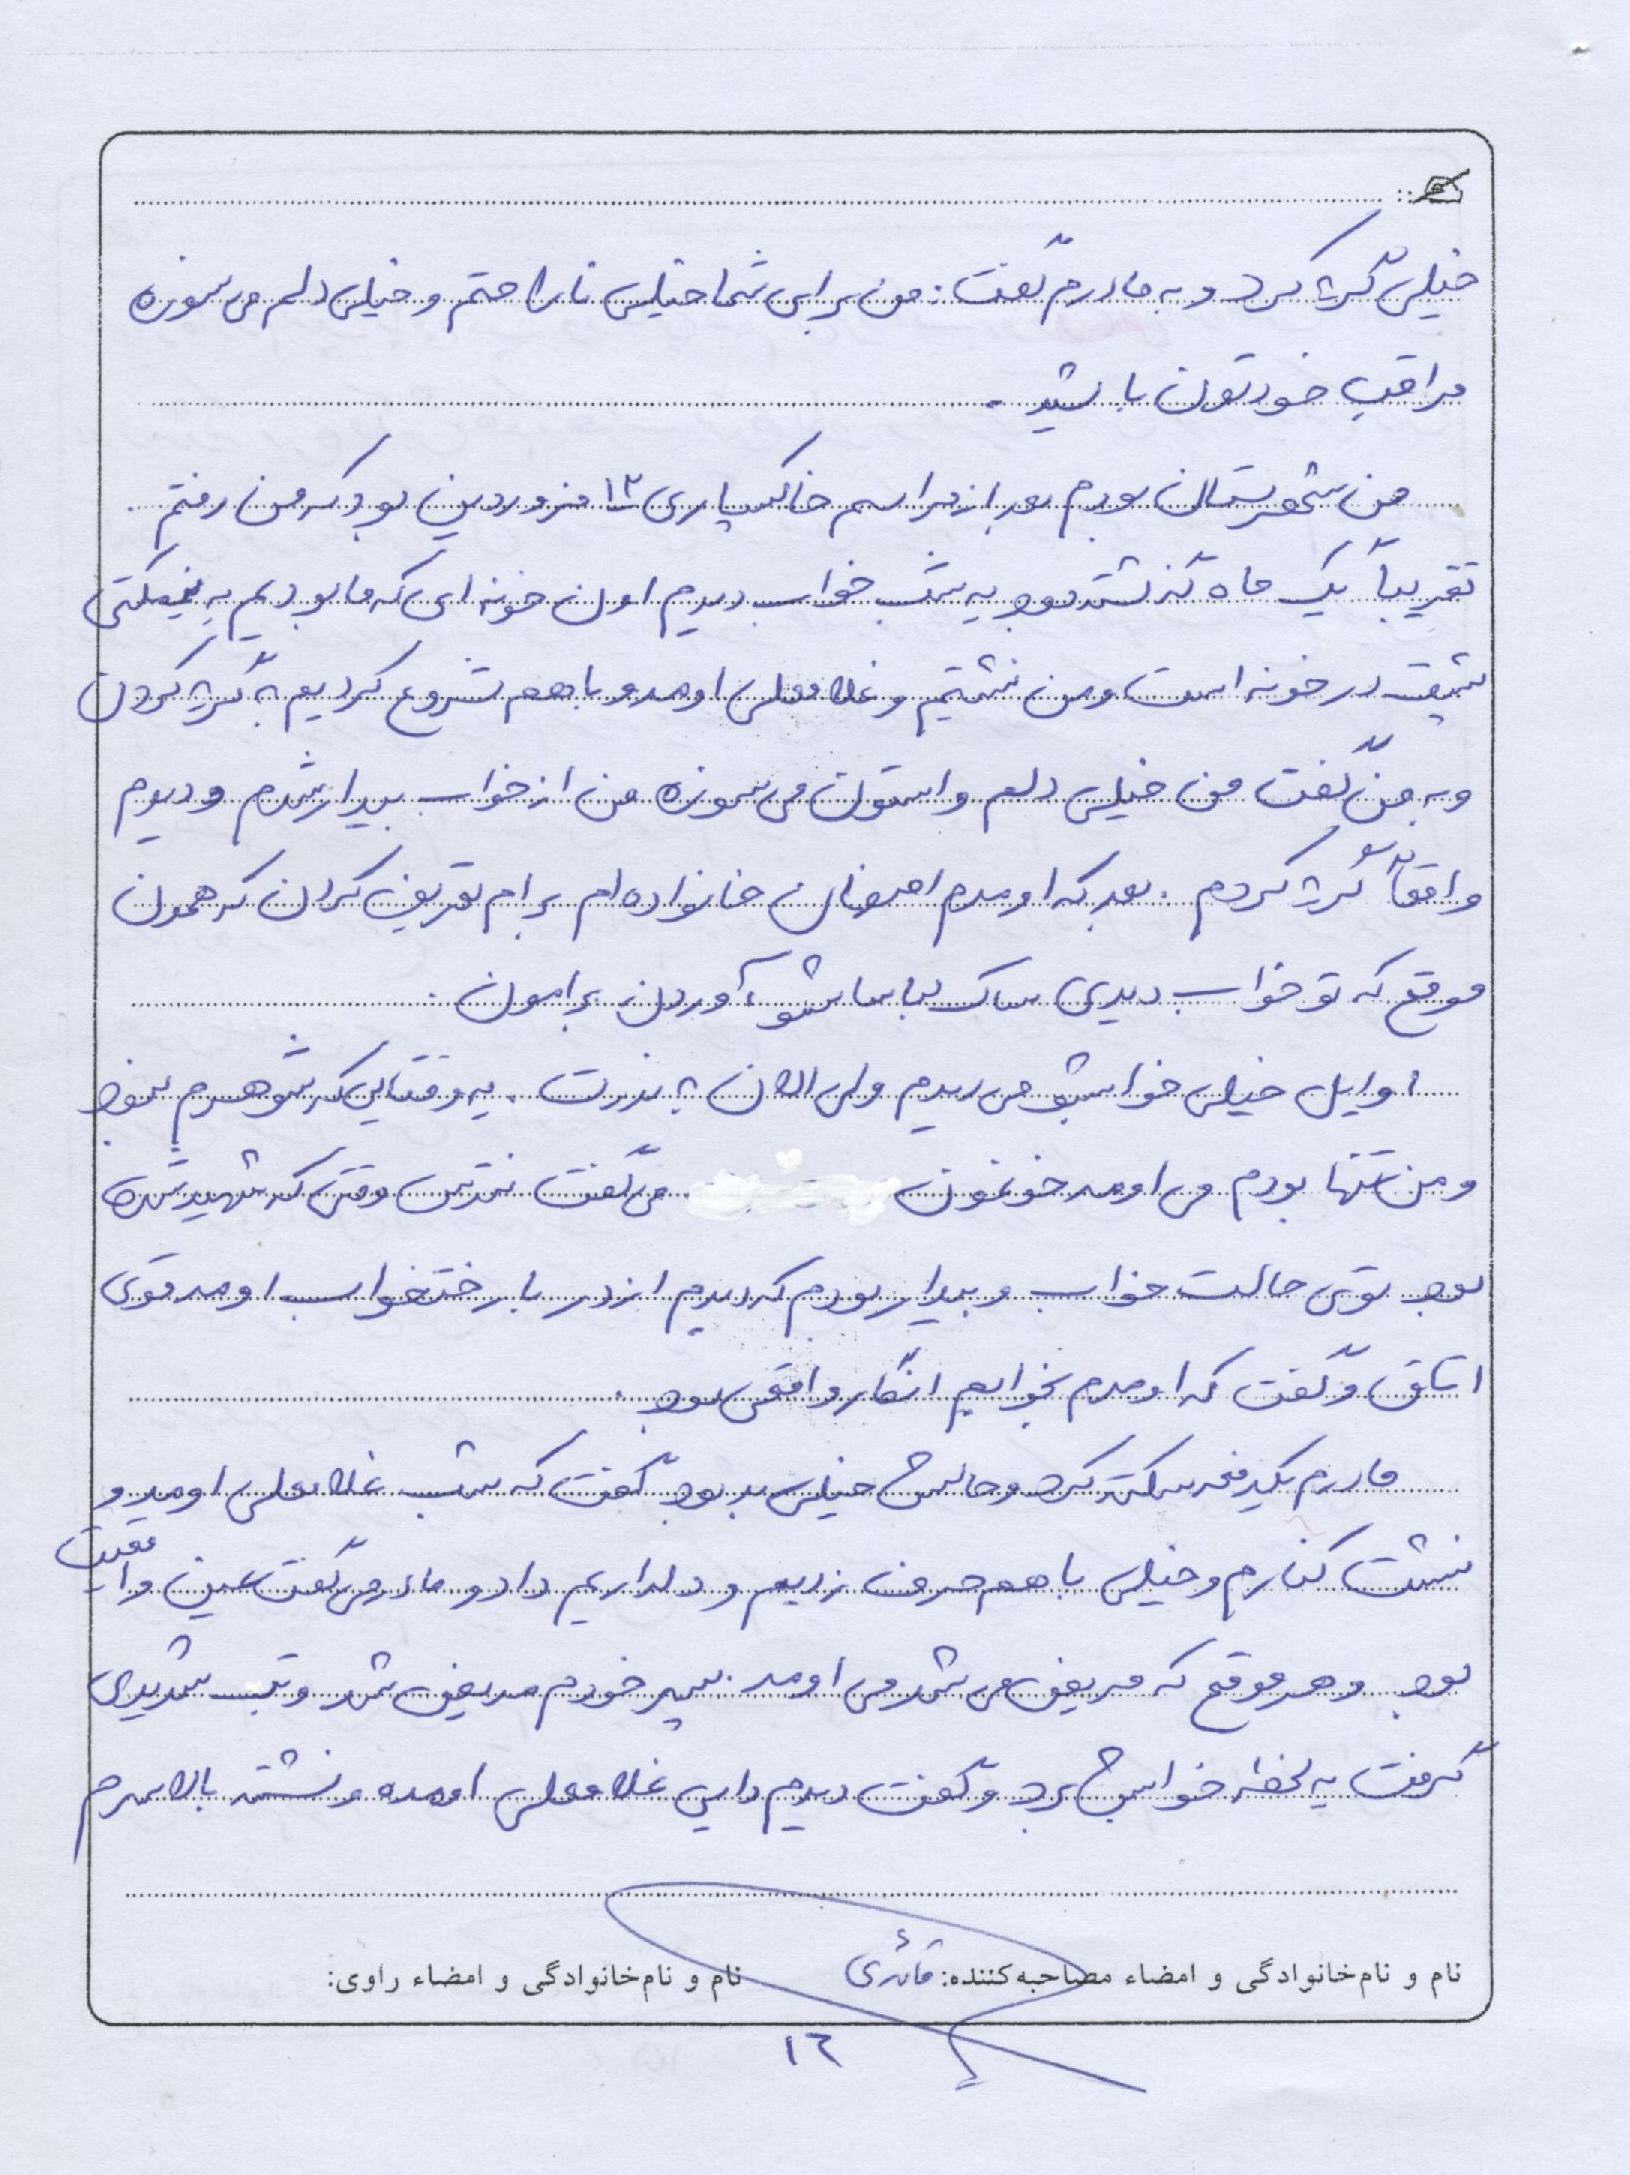 خیلی گریه کرد و به مادرم گفت: من برای شما خیلی ناراحتم و خیلی دلم می سوزه
مراقب خودتون باشید.
من شهرستان بودم بعد از مراسم خاکسپاری ۱۲ فروردین بود که من رفتم.
تقریباً یک ماه گذشته بود یه شب خواب دیدم اون خونه ای که ما بودیم یه نیمکتی
پشت در خونه است و من نشستیم و غلامعلی اومد و با هم شروع کردیم به گریه کردن
و به من گفت من خیلی دلم واستون می سوزه من از خواب بیدار شدم و دیدم
واقعاً گریه کردم. بعد که اومدم اصفهان خانواده ام برام تعریف کردن که همون
موقع که تو خواب دیدی ساک لباساشو آوردن برامون.
اوایل خیلی خوابشو می دیدم ولی الان به ندرت. یه وقتایی که شوهرم نبود
و من تنها بودم می اومد خونمون می گفت نترس وقتی که شهید شده
بود توی حالت خواب و بیدار بودم که دیدم از در با رختخواب اومد توی
اتاق و گفت که اومدم بخوابم انگار واقعی بود.
مادرم یکدفعه سکته کرد و حالش خیلی بد بود گفت که شب غلامعلی اومد و
نشست کنارم و خیلی با هم حرف زدیم و دلداریم داد و مادرم می گفت عین واقعیت
بود و هر موقع که مریض می شد می اومد. پسر خودم مریض شد و تب شدیدی
گرفت یه لحظه خوابش برد و گفت دیدم دایی غلامعلی اومده و نشسته بالا سرم
نام و نام‌خانوادگی و امضاء مصاحبه‌کننده: قائدی نام و نام‌خانوادگی و امضاء راوی:
۱۶